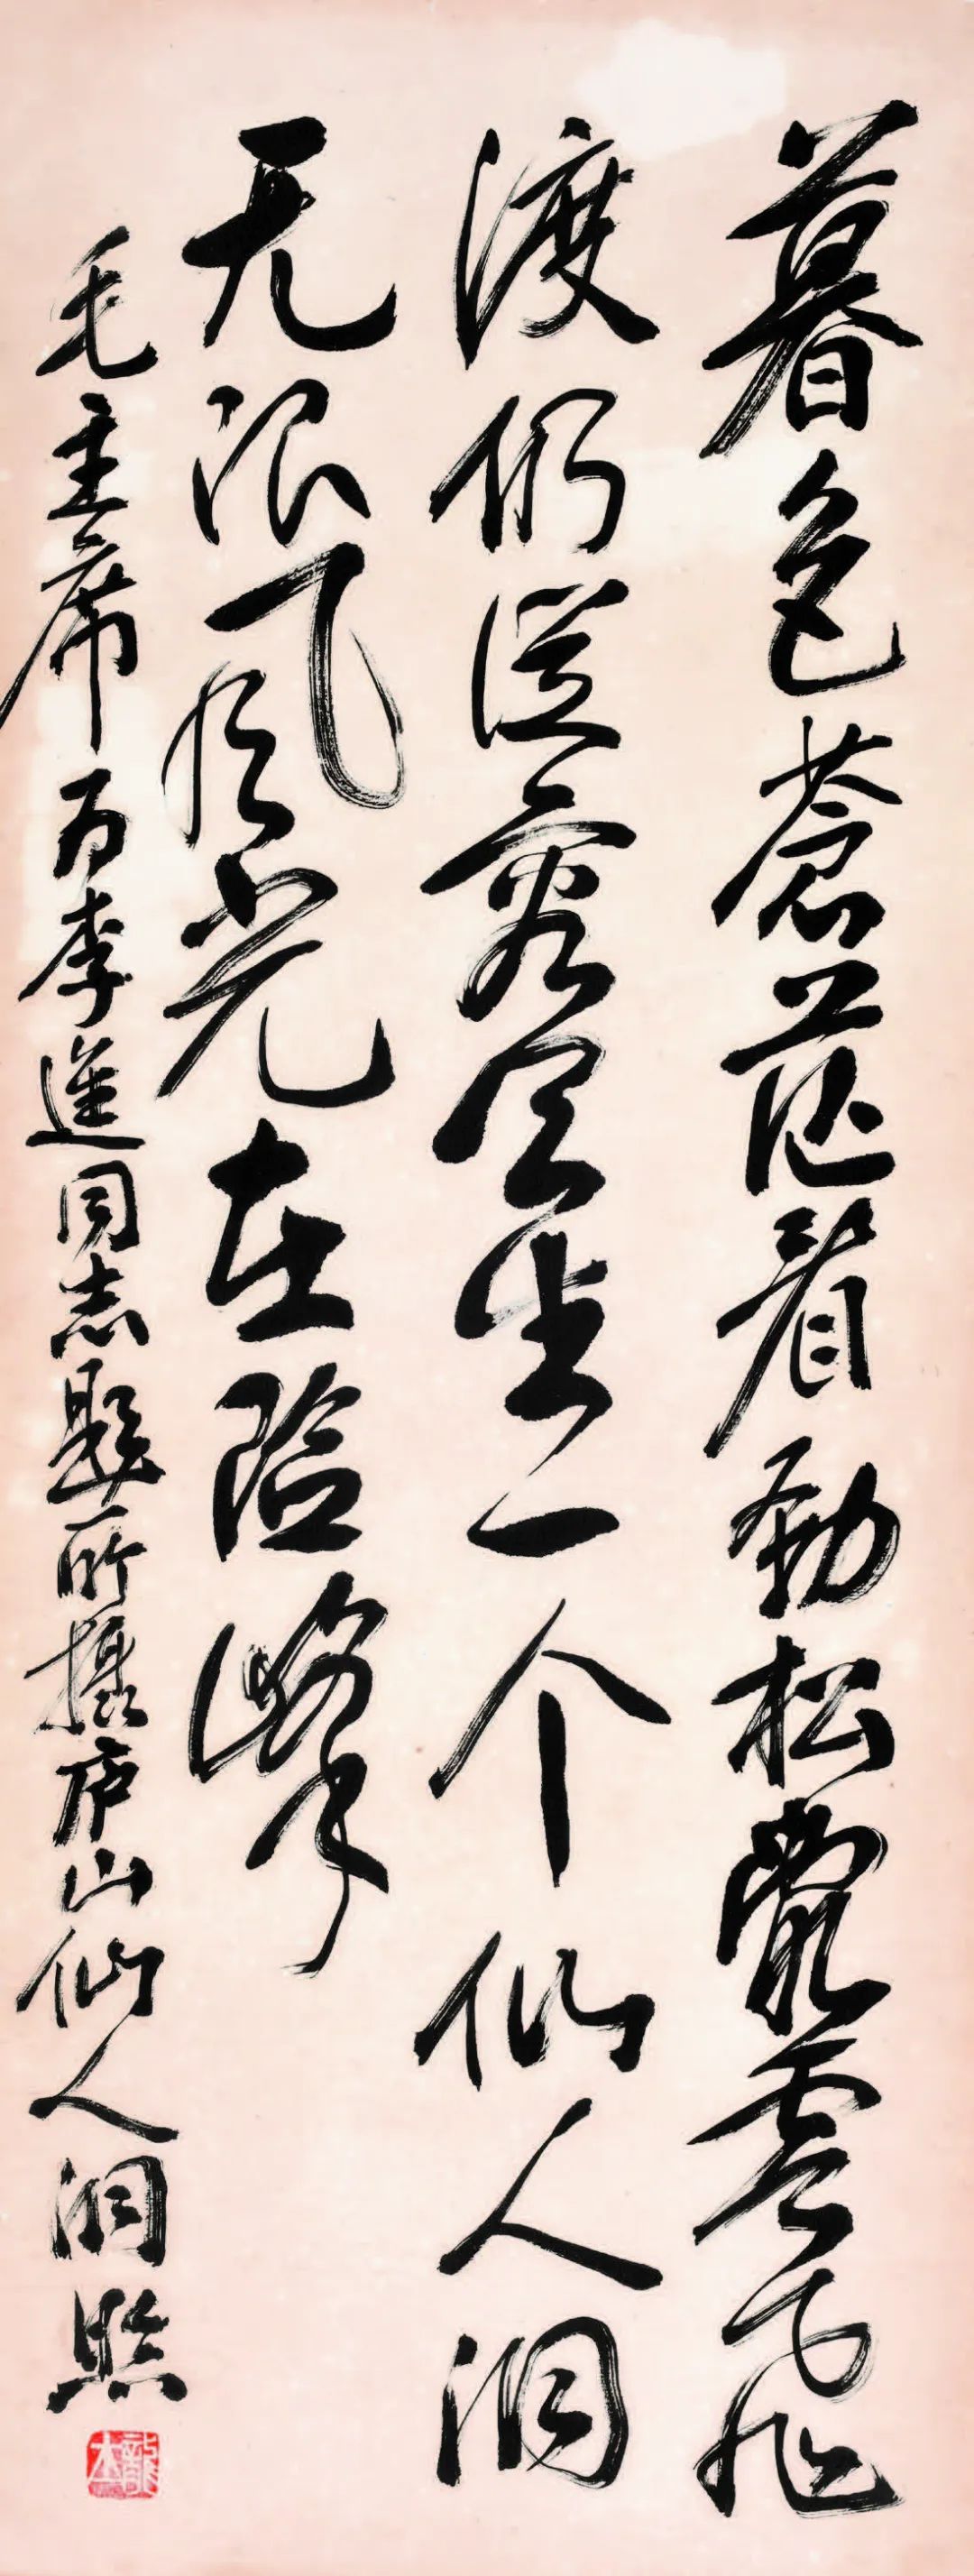 暮色蒼茫看劲松亂雲飛
渡仍從容天生一个仙人洞
无限风光在险峰
毛主席为李進同志题所摄庐山仙人洞照
龍